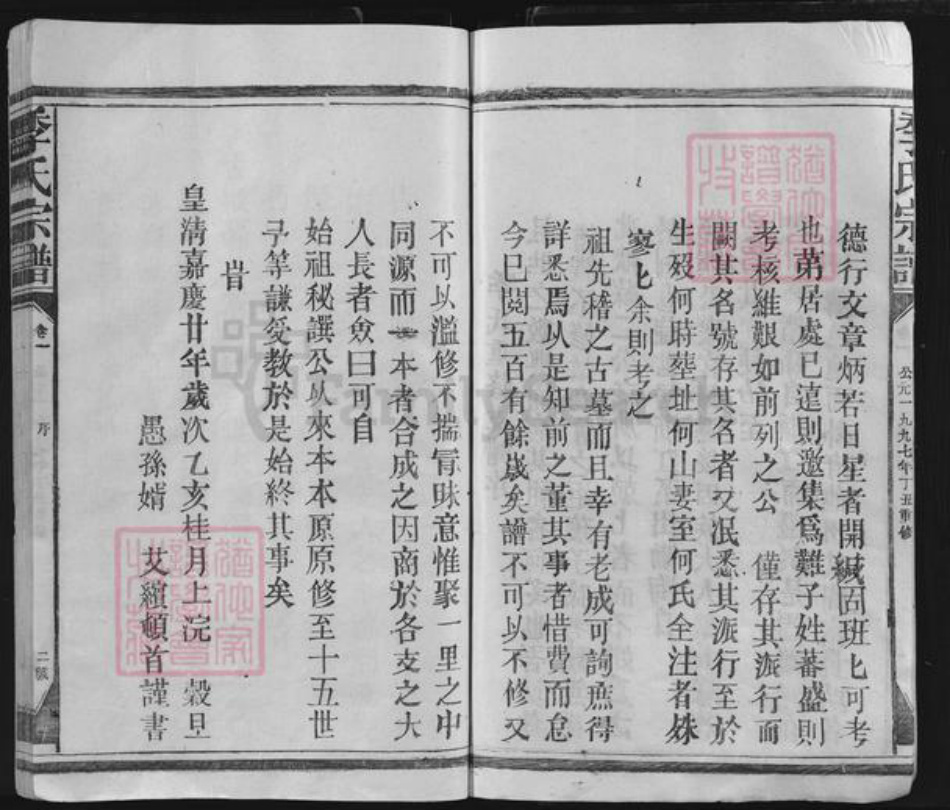 李氏宗譜
公元一九九七年丁丑重修
德行文章炳若日星者開緘固班匕可考
也苐居處已遠則邀集爲難子姓蕃盛則
考核維艱如前列之公 僅存其派行而
闕其名號存其名者又泯悉其派行至於
生殁何時塟址何山妻室何氏全注者殊
寥匕余則考之
祖先稽之古墓而且幸有老成可詢庶得
詳悉焉以是知前之董其事者惜費而怠
今已閱五百有餘歲矣譜不可以不修又
不可以濫修不揣冐昧意惟聚一里之中
同源而一本者合成之因商於各支之大
人長者僉曰可自
始祖秘譔公以來本本原原修至十五世
予等謙受教於是始終其事矣
旹
皇清嘉慶廿年歲次乙亥桂月上浣 穀旦
愚孫婿 艾纘頓首謹書
李氏宗譜
卷一
序
二號